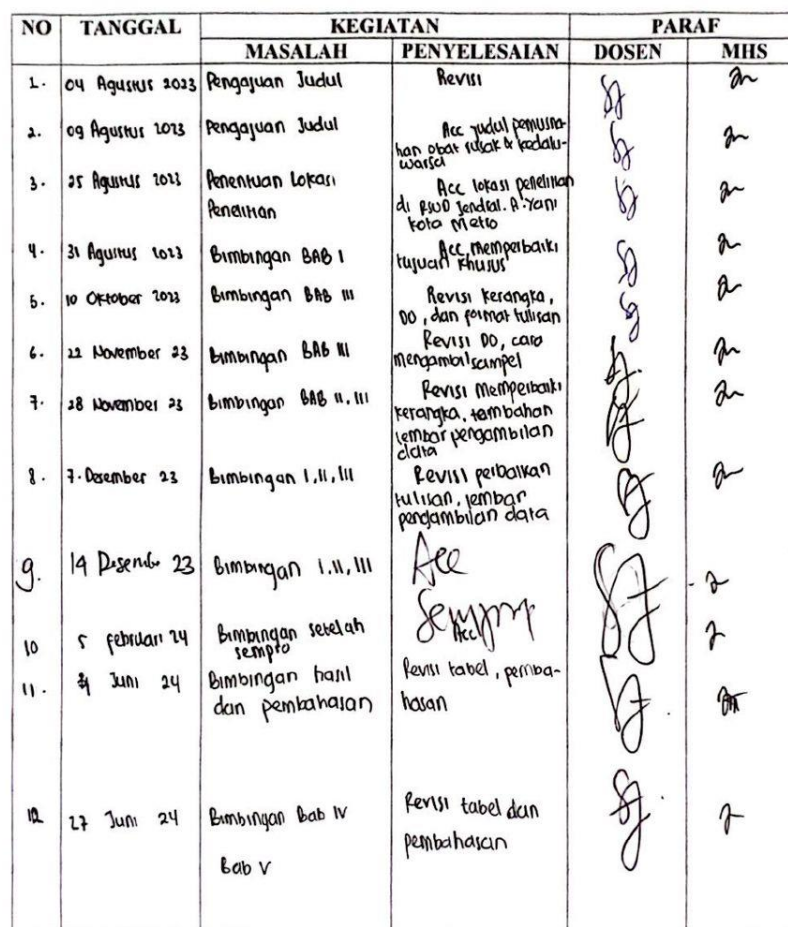 NO TANGGAL KEGIATAN PARAF
MASALAH PENYELESAIAN DOSEN MHS
1. 04 Agustus 2023 Pengajuan Judul Revisi
2. 09 Agustus 2023 Pengajuan Judul Acc judul pemusna-
han obat rusak & kedalu-
warsa
3. 25 Agustus 2023 Penentuan Lokasi Acc lokasi penelitian
Penelitian di RSUD Jendral. A. Yani
kota Metro
4. 31 Agustus 2023 Bimbingan BAB I Acc, memperbaiki
tujuan khusus
5. 10 Oktober 2023 Bimbingan BAB III Revisi kerangka,
DO, dan format tulisan
6. 22 November 23 Bimbingan BAB III Revisi DO, cara
mengambil sampel
7. 28 November 23 Bimbingan BAB II, III Revisi memperbaiki
kerangka, tambahan
lembar pengambilan
data
8. 7. Desember 23 Bimbingan I, II, III Revisi perbaikan
tulisan, lembar
pengambilan data
9. 14 Desember 23 Bimbingan I, II, III Acc
10 5 februari 24 Bimbingan setelah
sempro Acc
11. Juni 24 Bimbingan hasil Revisi tabel, pemba-
dan pembahasan hasan
12 27 Juni 24 Bimbingan Bab IV Revisi tabel dan
Bab V pembahasan